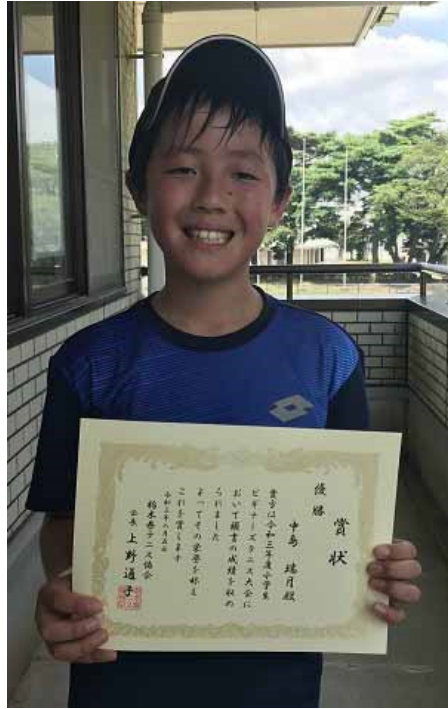 賞状
優勝
中島 瑞月殿
貴方は令和三年度小学生
ビギナーズテニス大会に
おいて頭書の成績を収め
られました
よってその栄誉を称え
これを賞します
令和三年八月五日
栃木県テニス協会
会長 上野通子